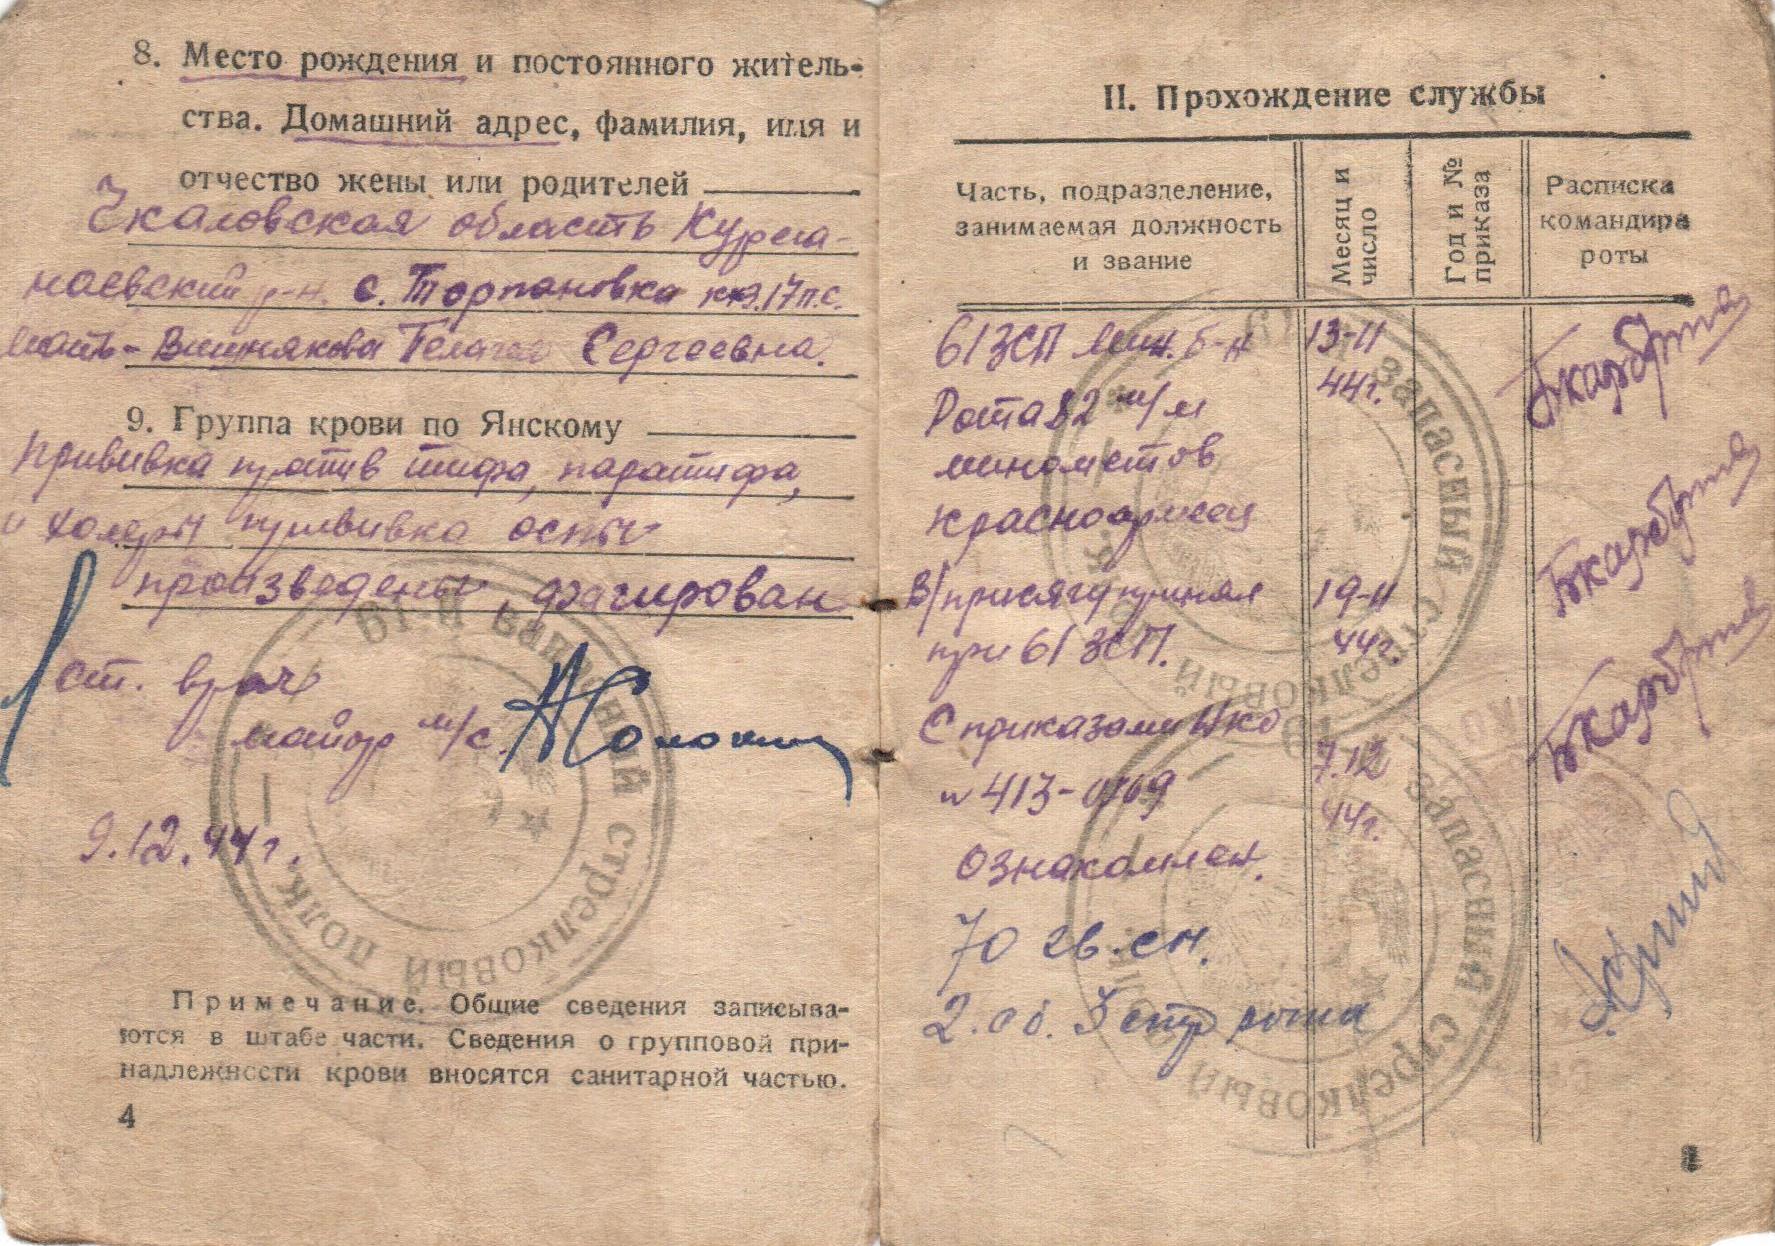 8. Место рождения и постоянного житель-
ства. Домашний адрес, фамилия, имя и
отчество жены или родителей
Чкаловская область Курма-
наевский р-н. с. Торпановка
мать - Вишнякова Пелагея Сергеевна.
9. Группа крови по Янскому
Прививка против тифа, паратифа,
и холеры прививка оспы
произведены
ст. врач
майор м/с.
9.12.44 г.
91-й запасный стрелковый полк
Примечание. Общие сведения записыва-
ются в штабе части. Сведения о групповой при-
надлежности крови вносятся санитарной частью.
4
II. Прохождение службы
Часть, подразделение,
занимаемая должность
и звание
Месяц и
число
Год и №
приказа
Расписка
командира
роты
61 ЗСП Мин. б-н 13-11
Рота 82 м/м 44г.
минометов
красноармеец
В/присягу принял 19-11
при 61 ЗСП. 44г.
С приказами НКО 7.12
№ 413-0169 44г.
ознакомлен.
70 гв. сп.
2. сб. 3 стр рота
запасный стрелковый
запасный стрелковый